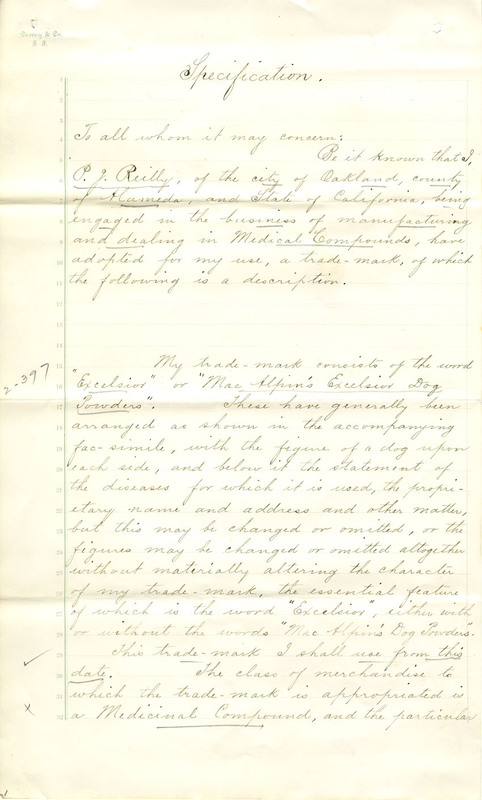 Dewey & Co.
S. F.
Specification.
To all whom it may concern:
Be it known that I,
P. J. Reilly, of the city of Oakland, county
of Alameda, and State of California, being
engaged in the business of manufacturing
and dealing in Medical Compounds, have
adopted for my use, a trade-mark, of which
the following is a description.
My trade-mark consists of the word
2.397
"Excelsior" or "Mac Alpin's Excelsior Dog
Powders". These have generally been
arranged as shown in the accompanying
fac-simile, with the figure of a dog upon
each side, and below it the statement of
the diseases for which it is used, the propri-
etary name and address and other matter,
but this may be changed or omitted, or the
figures may be changed or omitted altogether
without materially altering the character
of my trade-mark, the essential feature
of which is the word "Excelsior", either with
or without the words "Mac Alpin's Dog Powders".
This trade-mark I shall use from this
date. The class of merchandise to
which the trade-mark is appropriated is
x
a Medicinal Compound, and the particular